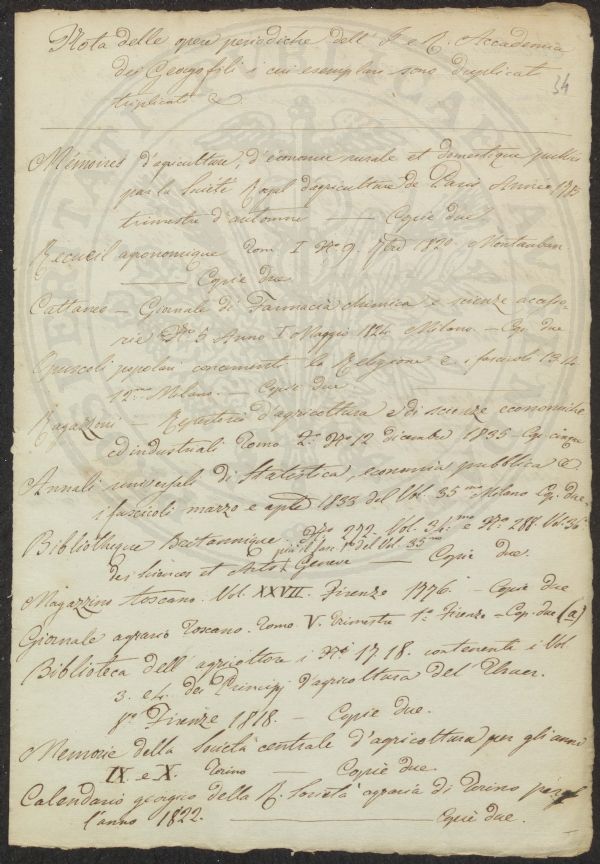 Nota delle opere periodiche dell' I. e R. Accademia
dei Georgofili i cui esemplari sono duplicati
triplicati &
34
Mémoires d'agriculture, d'économie rurale et domestique publiés
par la Société Royal d'agriculture de Paris Année 1785
trimestre d'automne — Copie due
Recueil agronomique Tom. I N.o 9. 1820. Montauban
— Copie due
Cattaneo – Giornale di Farmacia chimica e scienze accesso-
rie N.o 5 Anno I Maggio 1824 Milano. – Cop. due
Opuscoli popolari concernenti la Religione & i fascicoli 13. 14.
12.mo Milano. – Copie due
Ragazzoni – Repertorio d'agricoltura e di scienze economiche
ed industriali Tomo 2.o N.o 12 dicembre 1835 – Cop. cinque
Annali universali di Statistica, economia pubblica &
i fascicoli marzo e aple 1833 del Vol. 35.mo Milano Cop. due.
Bibliotheque Britannique N.o 272. Vol. 34.mo e N.o 288. Vol. 36
più il fas. 1.o del Vol. 35.mo
des Sciences et Arts Geneve — Copie due.
Magazzino toscano. Vol. XXVII. Firenze 1776. – Copie due
Giornale agrario Toscano. Tomo V. trimestre 1.o Firenze – Cop. due (a)
Biblioteca dell' agricoltore i N.i 17. 18. contenente i Vol
3. e 4. dei Principj d'agricoltura del Thaer.
8.o Firenze 1818. – Copie due.
Memorie della Società centrale d'agricoltura per gli anni
IX. e X. Torino — Copie due.
Calendario georgico della R. Società agraria di Torino per
l'anno 1822. — Copie due.